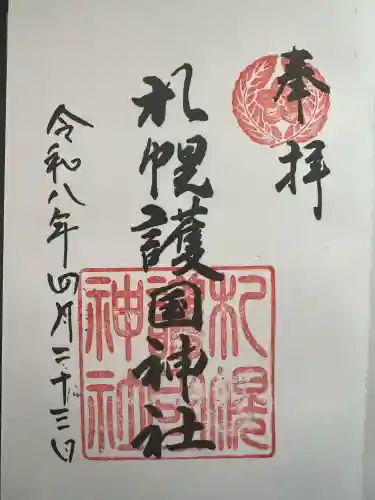 奉拝
札幌護国神社
札幌護国神社
令和八年四月二十三日